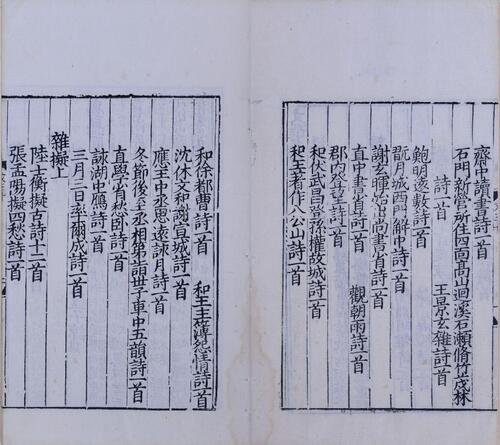 齋中讀書詩一首
石門新營所住四面高山迴溪石瀨脩竹茂林
詩一首　王景玄雜詩一首
鮑明遠數詩一首
翫月城西門解中詩一首
謝玄暉始出尚書省詩一首
直中書省詩一首　觀朝雨詩一首
郡內登望詩一首
和伏武昌登孫權故城詩一首
和王著作八公山詩一首
和徐都曹詩一首　和王主簿怨情詩一首
沈休文和謝宣城詩一首
應王中丞思遠詠月詩一首
冬節後至丞相第詣世子車中五韻詩一首
直學省愁臥詩一首
詠湖中鴈詩一首
三月三日率爾成詩一首
雜擬上
陸士衡擬古詩十二首
張孟陽擬四愁詩一首